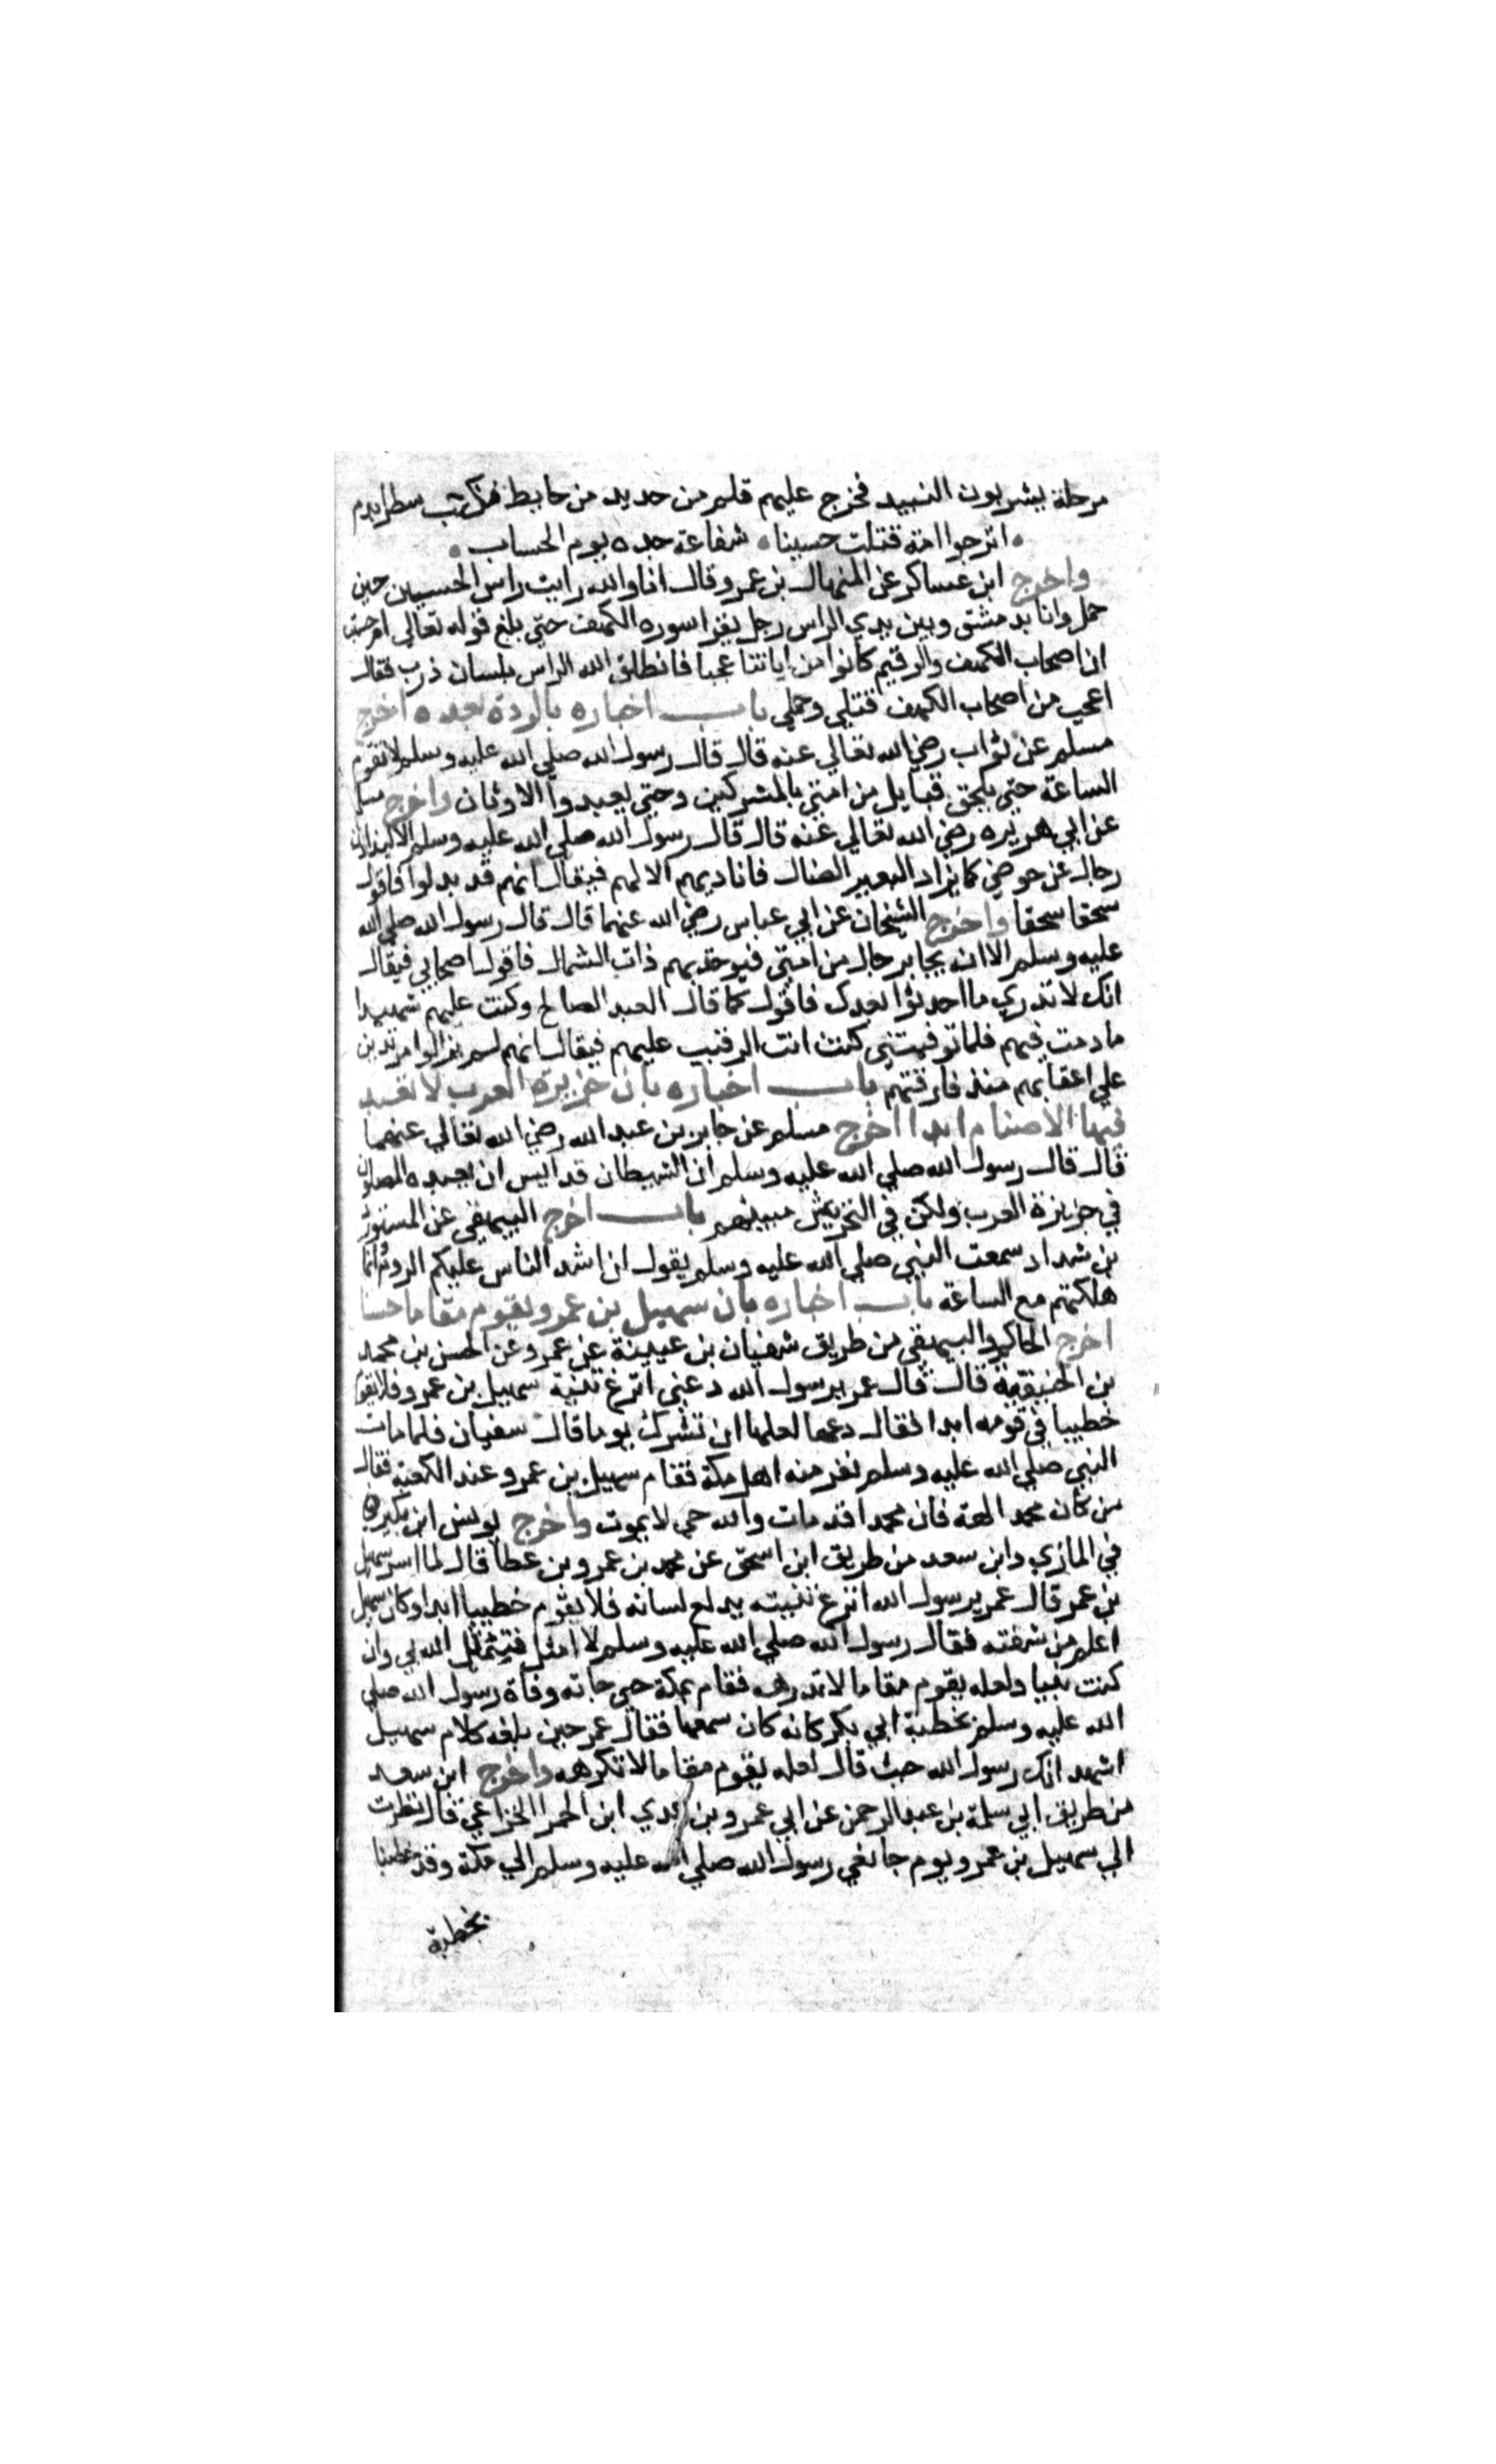 مرحلة يشربون النبيد فخرج عليهم قلم من حديد من حايط فكتب سطرا بدم
اترجوا امة قتلت حسينا شفاعة جده يوم الحساب
واخرج ابن عساكر عن المنهال بن عمرو قال انا والله رايت راس الحسين حين
حمل وانا بدمشق وبين يدي الراس رجل يقرا سوره الكهف حتي بلغ قوله تعالي ام حسبت
ان اصحاب الكهف والرقيم كانوا من اياتنا عجبا فانطلق الله الراس بلسان ذرب فقال
اعجب من اصحاب الكهف قتلي وحملي باب اخباره بالردة بعده اخرج
مسلم عن ثواب رضي الله تعالي عنه قال قال رسول الله صلي الله عليه وسلم لا تقوم
الساعة حتي يلحق قبايل من امتي بالمشركين وحتي يعبدوا الاوثان واخرج مسلم
عن ابي هريره رضي الله تعالي عنه قال قال رسول الله صلي الله عليه وسلم الا ليذادن
رجال عن حوضي كما يزاد البعير الضال فاناديهم الا لهم فيقال انهم قد بدلوا فاقول
سحقا سحقا واخرج الشيخان عن ابي عباس رضي الله عنهما قال قال رسول الله صلي الله
عليه وسلم الا ان يجا برجال من امتي فيوخذ بهم ذات الشمال فاقول اصحابي فيقال
انك لا تدري ما احدثوا بعدك فاقول كما قال العبد الصالح وكنت عليهم شهيدا
ما دمت فيهم فلما توفيتني كنت انت الرقيب عليهم فيقال انهم لم يزالوا مرتدين
علي اعقابهم منذ فارقتهم باب اخباره بان جزيرة العرب لا تعبد
فيها الاصنام ابدا اخرج مسلم عن جابر بن عبد الله رضي الله تعالي عنهما
قال قال رسول الله صلي الله عليه وسلم ان الشيطان قد ايس ان يعبده المصلون
في جزيزة العرب ولكن في التحريش بينهم باب اخرج البيهقي عن المستورد
بن شداد سمعت النبي صلي الله عليه وسلم يقول ان اشد الناس عليكم الروم وانما
هلكتهم مع الساعة باب اخباره بان سهيل بن عمرو يقوم مقاما حسنا
اخرج الحاكم والبيهقي من طريق شفيان بن عيينة عن عمرو عن الحسن بن محمد
بن الحنيفية قال قال عمر يرسول الله دعني انزع ثنية سهيل بن عمرو فلا يقوم
خطيبا في قومه ابدا فقال دعها لعلها ان تشرك يوما قال سفيان فلما مات
النبي صلي الله عليه وسلم نفر منه اهل مكة فقام سهيل بن عمرو عند الكعبة فقال
من كان محمد الهه فان محمدا قد مات والله حي لا يموت واخرج يونس ابن بكير
في المازي وابن سعد من طريق ابن اسحق عن محمد بن عمرو بن عطا قال لما اسر سهيل
بن عمر قال عمر يرسول الله انزع ثنيته يدلع لسانه فلا يقوم خطيبا ابدا وكان سهيل
اعلم من شفته فقال رسول الله صلي الله عليه وسلم لا امثل فيمثل الله بي وان
كنت نبيا ولعله يقوم مقاما لا تدرهه فقام بمكة حي جاته وفاة رسول الله صلي
الله عليه وسلم بخطبة ابي بكر كانه كان سمعها فقال عمر حين بلغه كلام سهيل
اشهد انك رسول الله حيث قال لعله يقوم مقاما لا تكرهه واخرج ابن سعد
من طريق ابي سلمة بن عبد الرحمن عن ابي عمرو بن عدي ابن الحمرا الخزاعي قال نظرت
الي سهيل بن عمرو يوم جا نعي رسول الله صلي الله عليه وسلم الي مكة وقد خطبنا
بخطبة